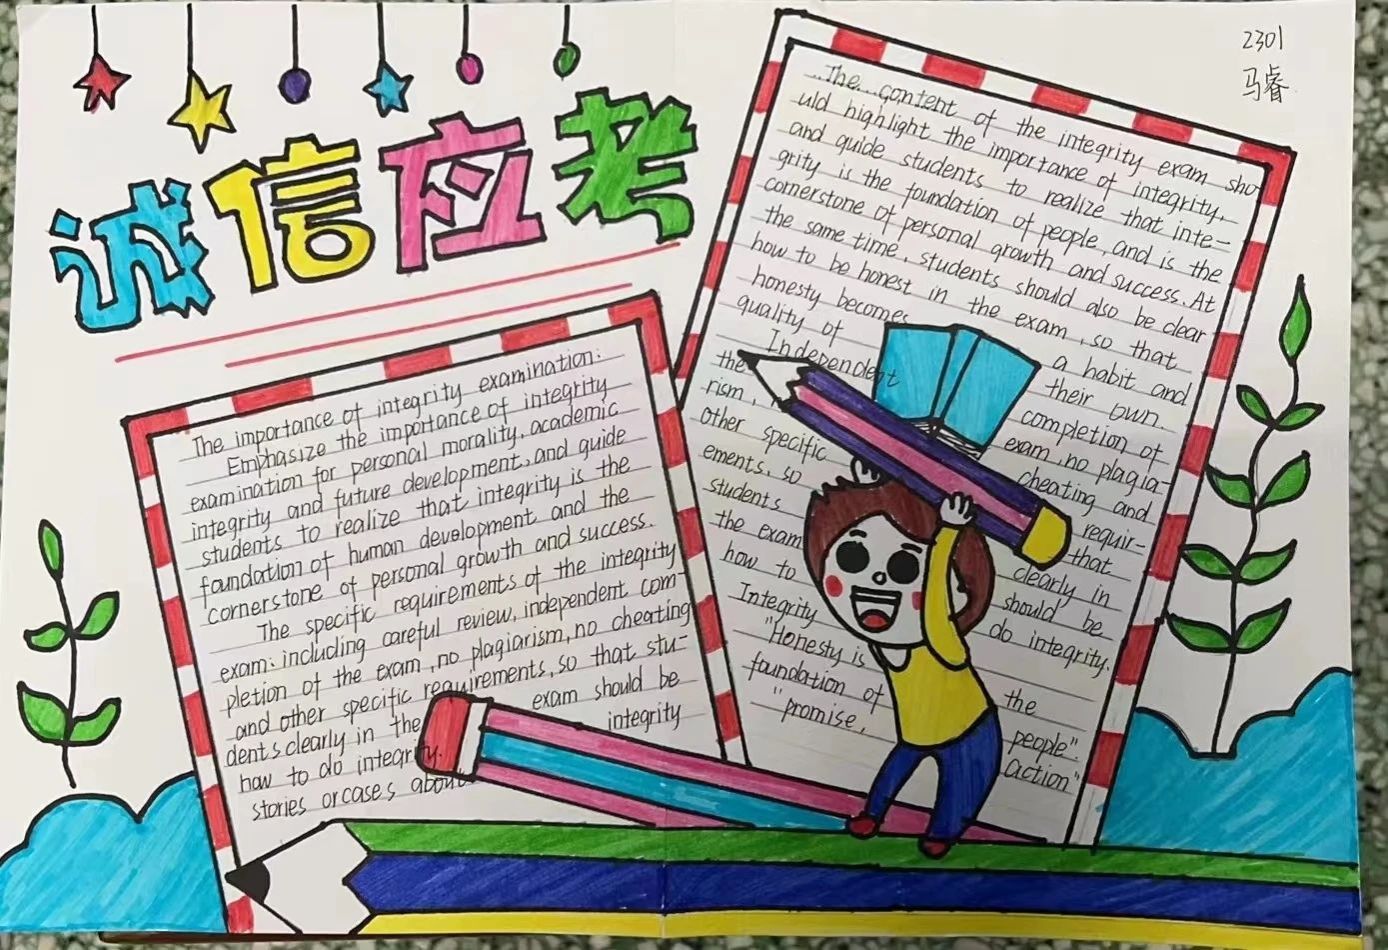 诚信应考
2301
马睿
The importance of integrity examination:
Emphasize the importance of integrity
examination for personal morality, academic
integrity and future development, and guide
students to realize that integrity is the
foundation of human development and the
cornerstone of personal growth and success.
The specific requirements of the integrity
exam: including careful review, independent com-
pletion of the exam, no plagiarism, no cheating
and other specific requirements, so that stu-
dents clearly in the exam should be
how to do integrity. integrity
stories or cases about
The content of the integrity exam sho-
uld highlight the importance of integrity,
and guide students to realize that inte-
grity is the foundation of people, and is the
cornerstone of personal growth and success. At
the same time, students should also be clear
how to be honest in the exam, so that
honesty becomes a habit and
quality of their own.
Independent completion of
the exam, no plagia-
rism, cheating and
other specific requir-
ements, so that
students clearly in
the exam should be
how to do integrity.
Integrity
"Honesty is the
foundation of people".
"promise, action"